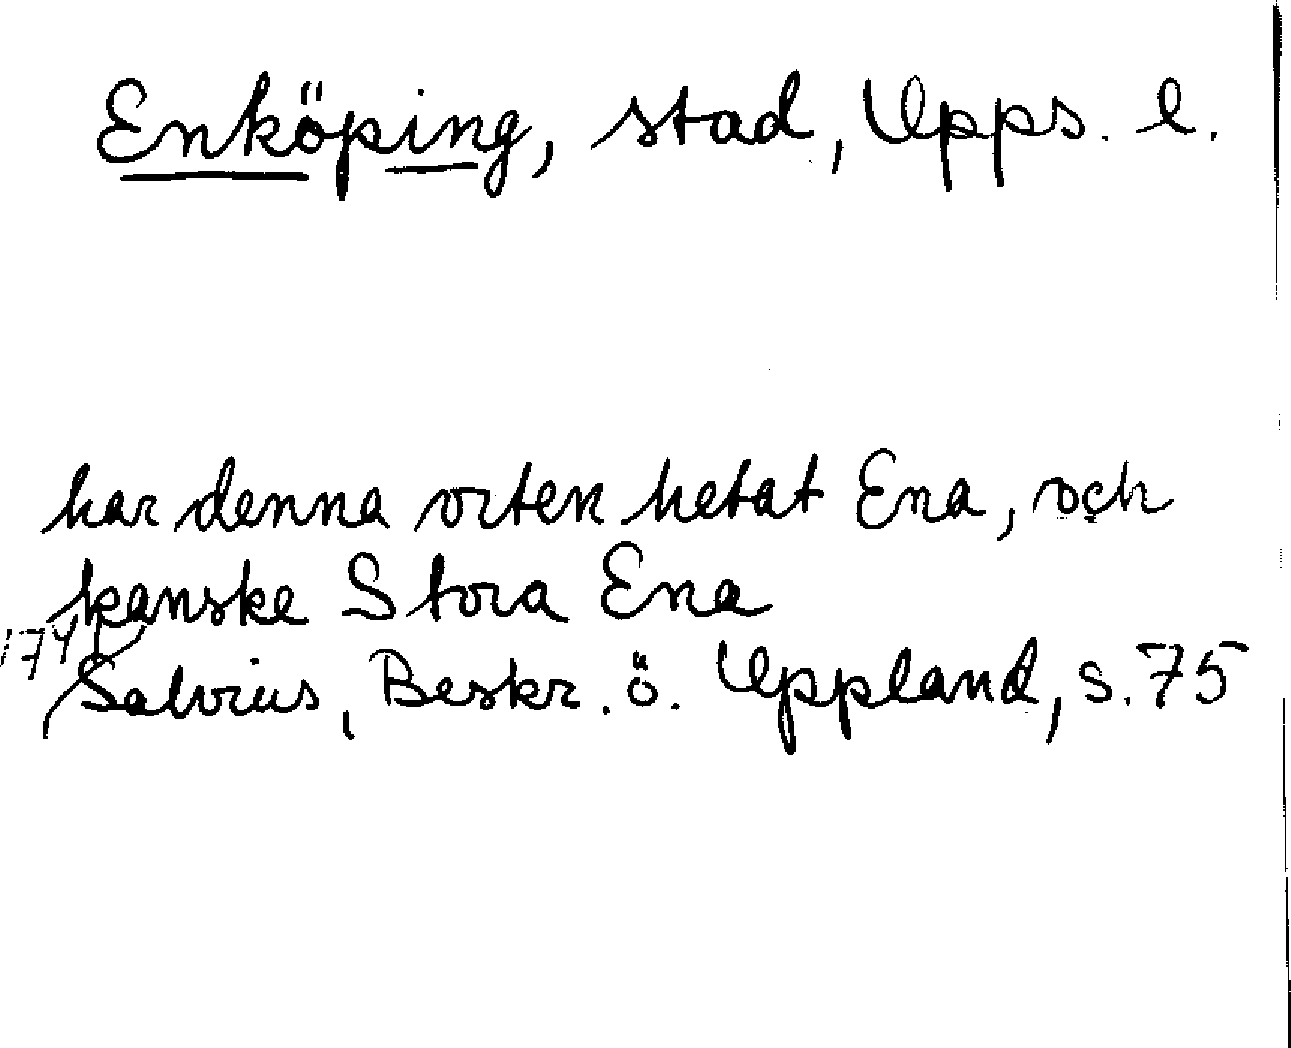 Enköping, stad, Upps. l.
har denna orten hetat Ena, och
kanske Stora Ena
1741
Salvius, Beskr. ö. Uppland, s. 75